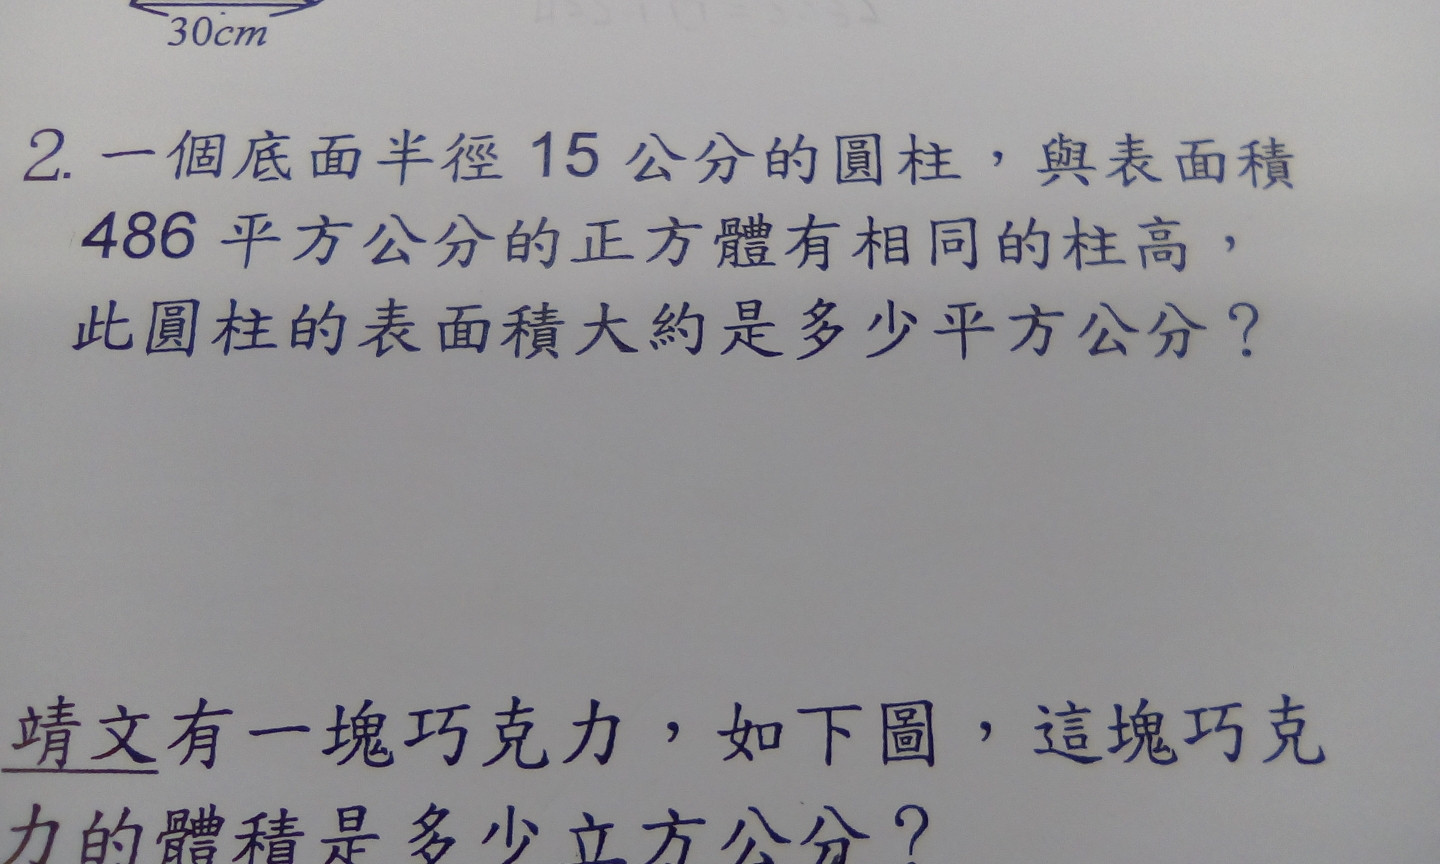 30cm
2. 一個底面半徑 15 公分的圓柱，與表面積
486 平方公分的正方體有相同的柱高，
此圓柱的表面積大約是多少平方公分？
靖文有一塊巧克力，如下圖，這塊巧克
力的體積是多少立方公分？